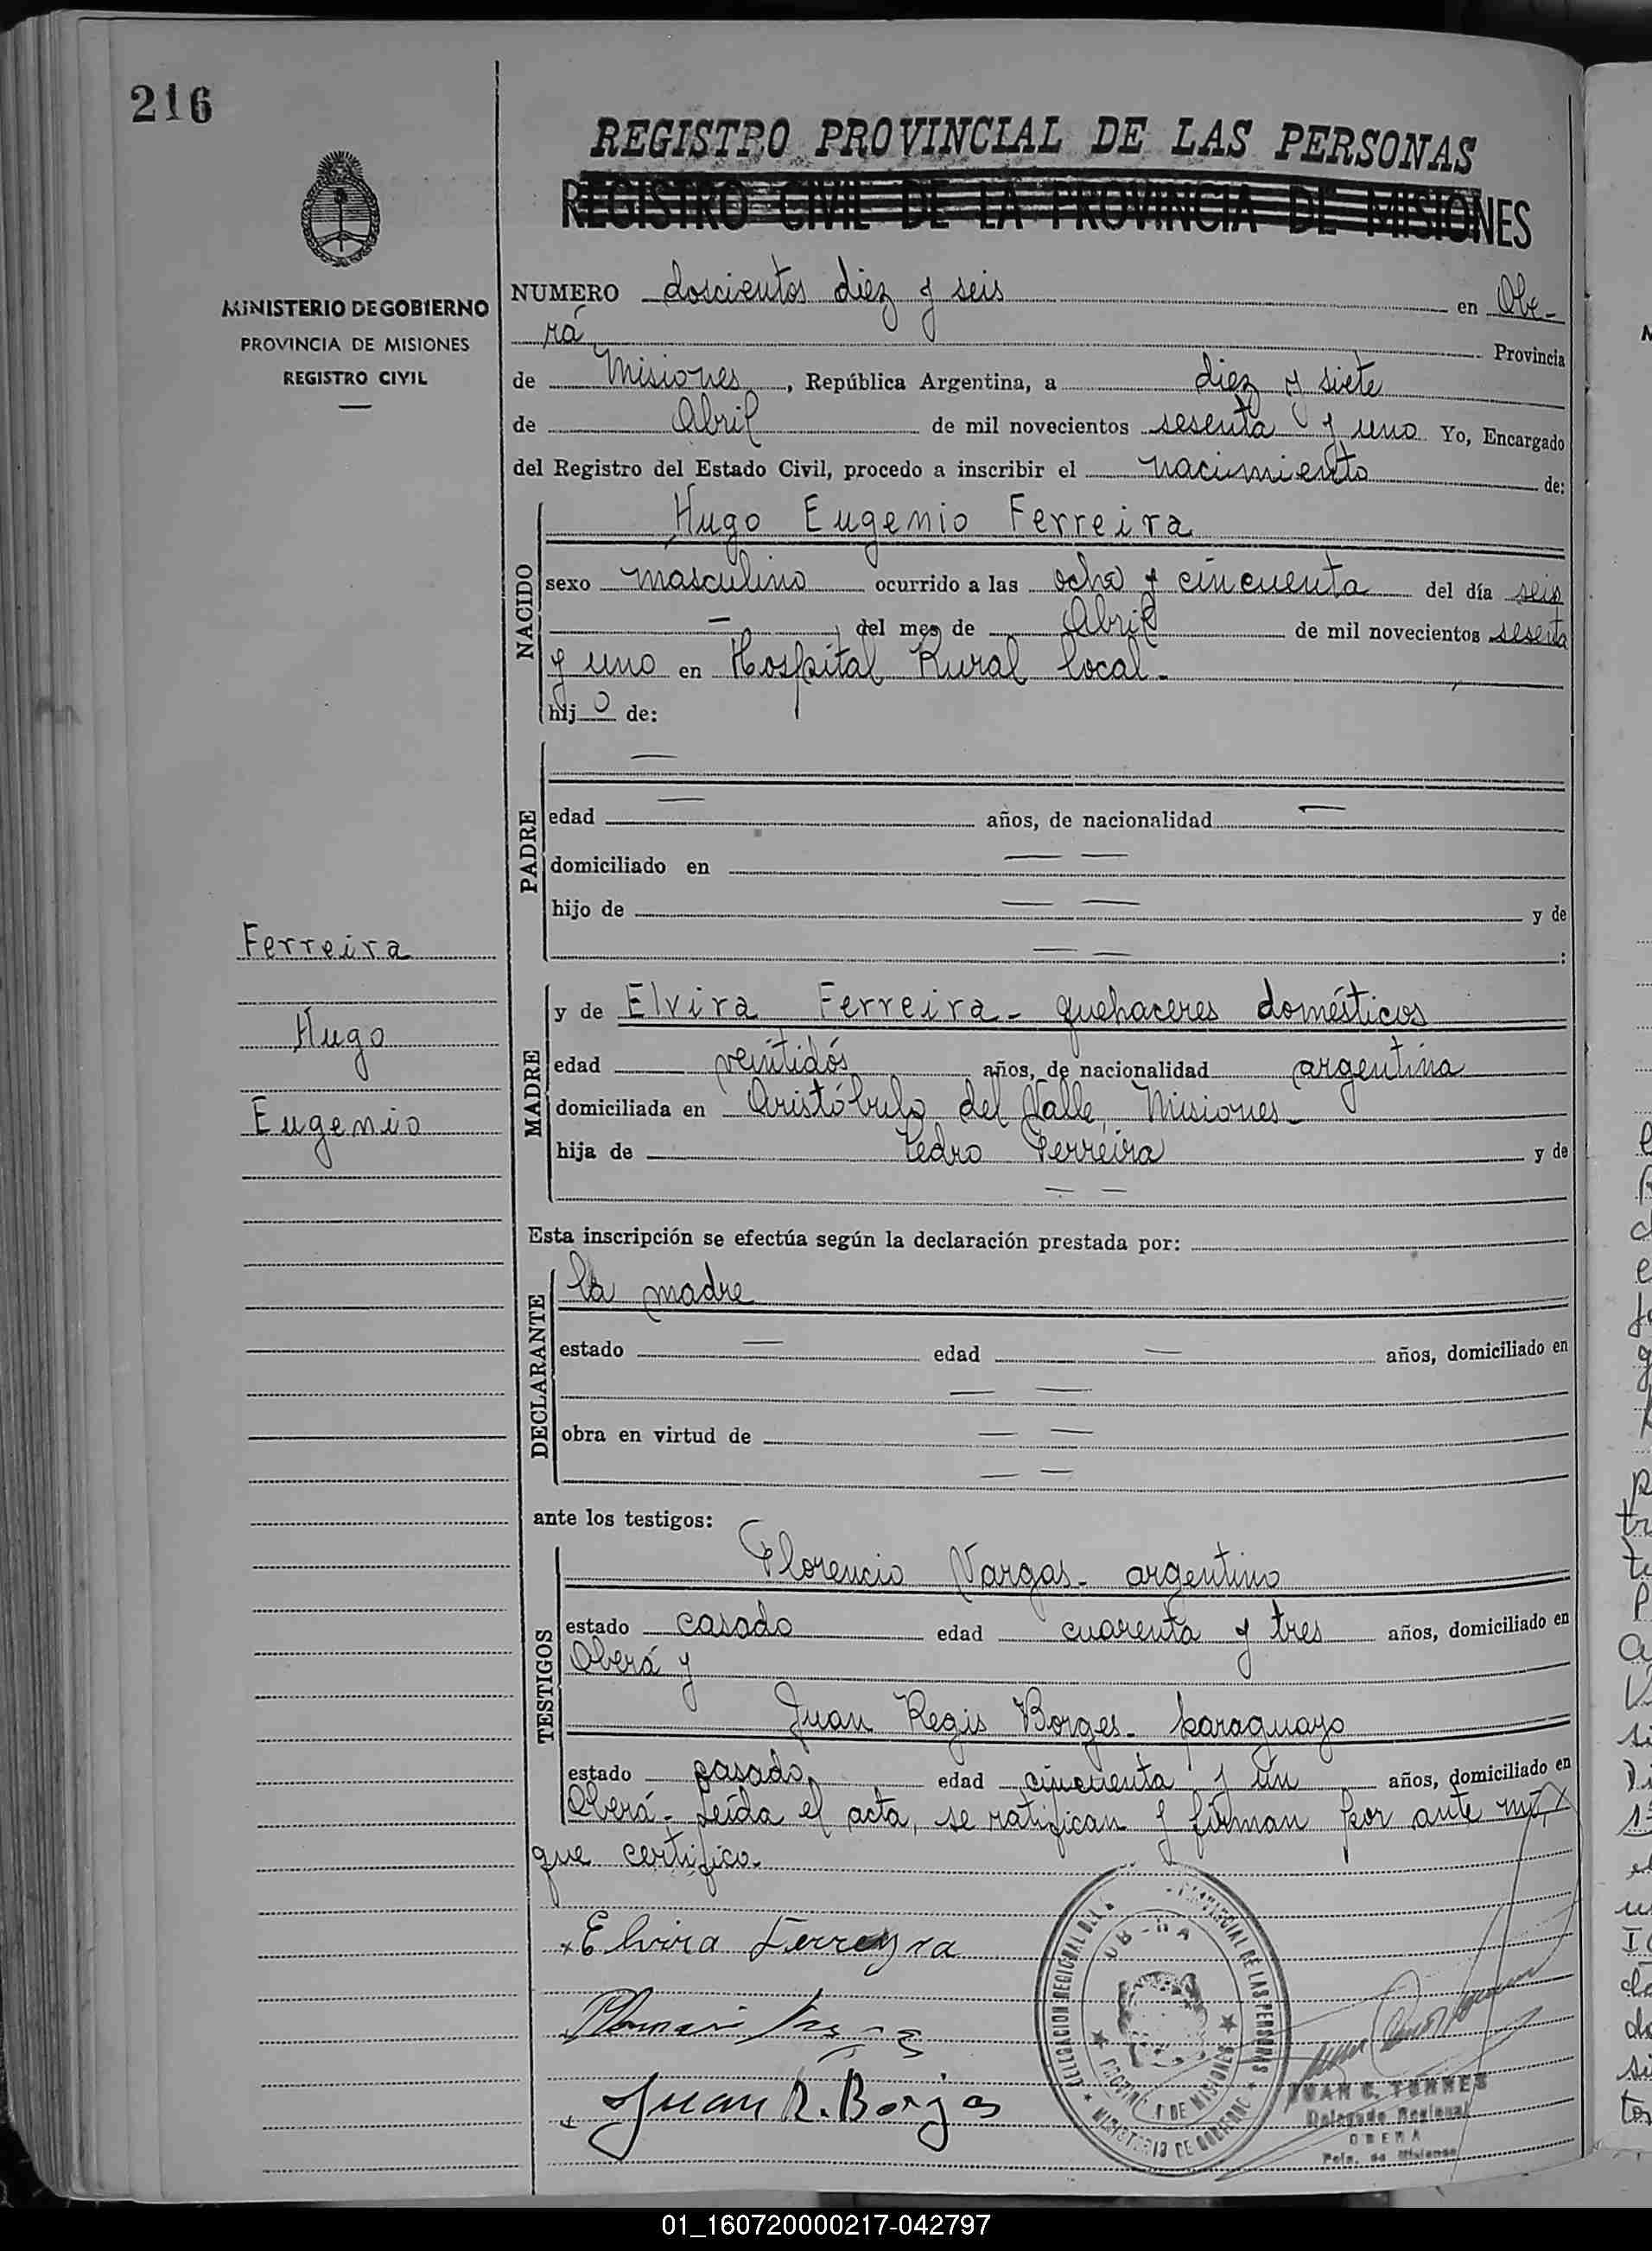 216
REGISTRO PROVINCIAL DE LAS PERSONAS
REGISTRO CIVIL DE LA PROVINCIA DE MISIONES
MINISTERIO DE GOBIERNO
PROVINCIA DE MISIONES
REGISTRO CIVIL
NUMERO doscientos diez y seis en Obe-
rá Provincia
de Misiones, República Argentina, a diez y siete
de Abril de mil novecientos sesenta y uno Yo, Encargado
del Registro del Estado Civil, procedo a inscribir el nacimiento de:
NACIDO
Hugo Eugenio Ferreira
sexo masculino ocurrido a las ocho y cincuenta del día seis
— del mes de Abril de mil novecientos sesenta
y uno en Hospital Rural local.
hijo de:
PADRE
—
edad — años, de nacionalidad —
domiciliado en — —
hijo de — — y de
— — :
Ferreira
Hugo
Eugenio
MADRE
y de Elvira Ferreira - quehaceres domésticos
edad veintidós años, de nacionalidad argentina
domiciliada en Aristóbulo del Valle, Misiones -
hija de Pedro Ferreira y de
— —
Esta inscripción se efectúa según la declaración prestada por:
DECLARANTE
la madre
estado — edad — años, domiciliado en
— —
obra en virtud de — —
— —
ante los testigos:
TESTIGOS
Florencio Vargas - argentino
estado casado edad cuarenta y tres años, domiciliado en
Oberá y
Juan Regis Borges - paraguayo
estado casado edad cincuenta y un años, domiciliado en
Oberá - Leída el acta, se ratifican y firman por ante mí,
que certifico.
Elvira Ferreyra
Juan R. Borjas
DELEGACION REGIONAL DEL
PROVINCIAL DE LAS PERSONAS
OBERA
PROVINCIA DE MISIONES
MINISTERIO DE GOBIERNO
JUAN C. TORRES
Delegado Regional
OBERA
Pcia. de Misiones
01_160720000217-042797